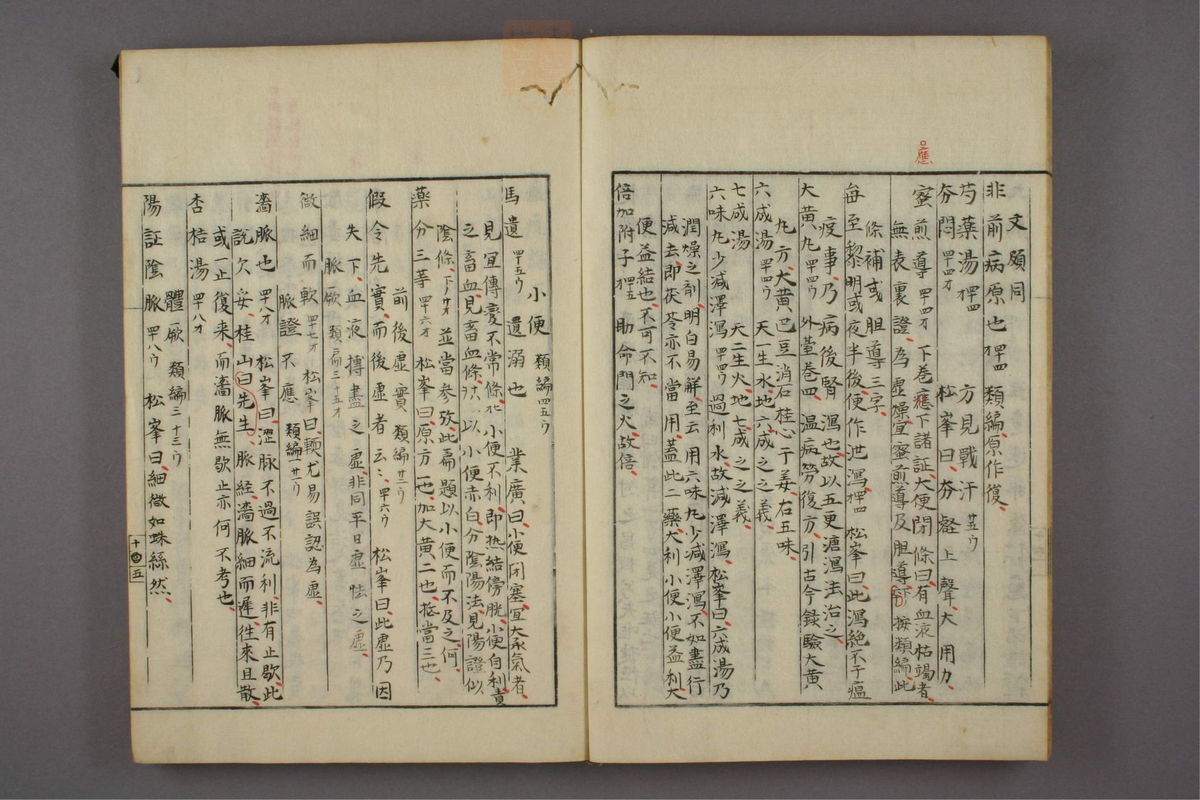 文願同
非前病原也 類編原作復
芍薬湯 方見戰汗 廿五ウ
夯悶 罒四オ 松峯曰夯壑上聲大用力
蜜煎導 罒四オ 下巻應下諸証大便閉條曰有血液枯竭者
無表裏證為虚燥宜蜜煎導及胆導 按類編此
條補或胆導三字
每至黎明或夜半後便作泄瀉 松峯曰此瀉絶不于瘟
疫事乃病後腎瀉也故以五更溏瀉法治之
大黄丸 罒四ウ 外臺巻四温病勞復方引古今録驗大黄
丸方大黄巴豆消石桂心干姜右五味
六成湯 罒四ウ 天一生水地六成之之義
七成湯 天二生火地七成之之義
六味丸少減澤瀉 罒四ウ 過利水故減澤瀉松峯曰六成湯乃
潤燥之剤明白易解至云用六味丸少減澤瀉不如盡行
減去即茯苓亦不當用蓋此二藥大利小便小便益利大
便益結也不可不知
倍加附子 助命門之火故倍
小便 類編四五ウ
馬遺 罒五ウ 遺溺也 業廣曰小便閉塞宜大承氣者
見宜傳變不常條 小便不利即熱結傍胱小便自利責
之畜血見畜血條 以小便赤白分陰陽法見陽證似
陰條下 並當参攷此扁題以小便而不及之何
藥分三等 罒六オ 松峯曰原方一也加大黄二也抵當三也
前後虚實 類編廿二ウ
假令先實而後虚者云〻 罒六ウ 松峯曰此虚乃因
失下血液搏盡之虚非同平日虚怯之虚
脈厥 類扁三十五オ
微細而軟 四十七オ 松峯曰軟尤易誤認為虚
脈證不應 類編一廿二ウ
濇脈也 罒八オ 松峯曰澀脈不過不流利非有止歇此
說欠妥桂山曰先生脈経濇脈細而遲往來且散
或一止復来而濇脈無歇止亦何不考也
杏桔湯 罒八オ
體厥 類編三十三ウ
陽証陰脈 罒八ウ 松峯曰細微如蛛絲然
十四五
應